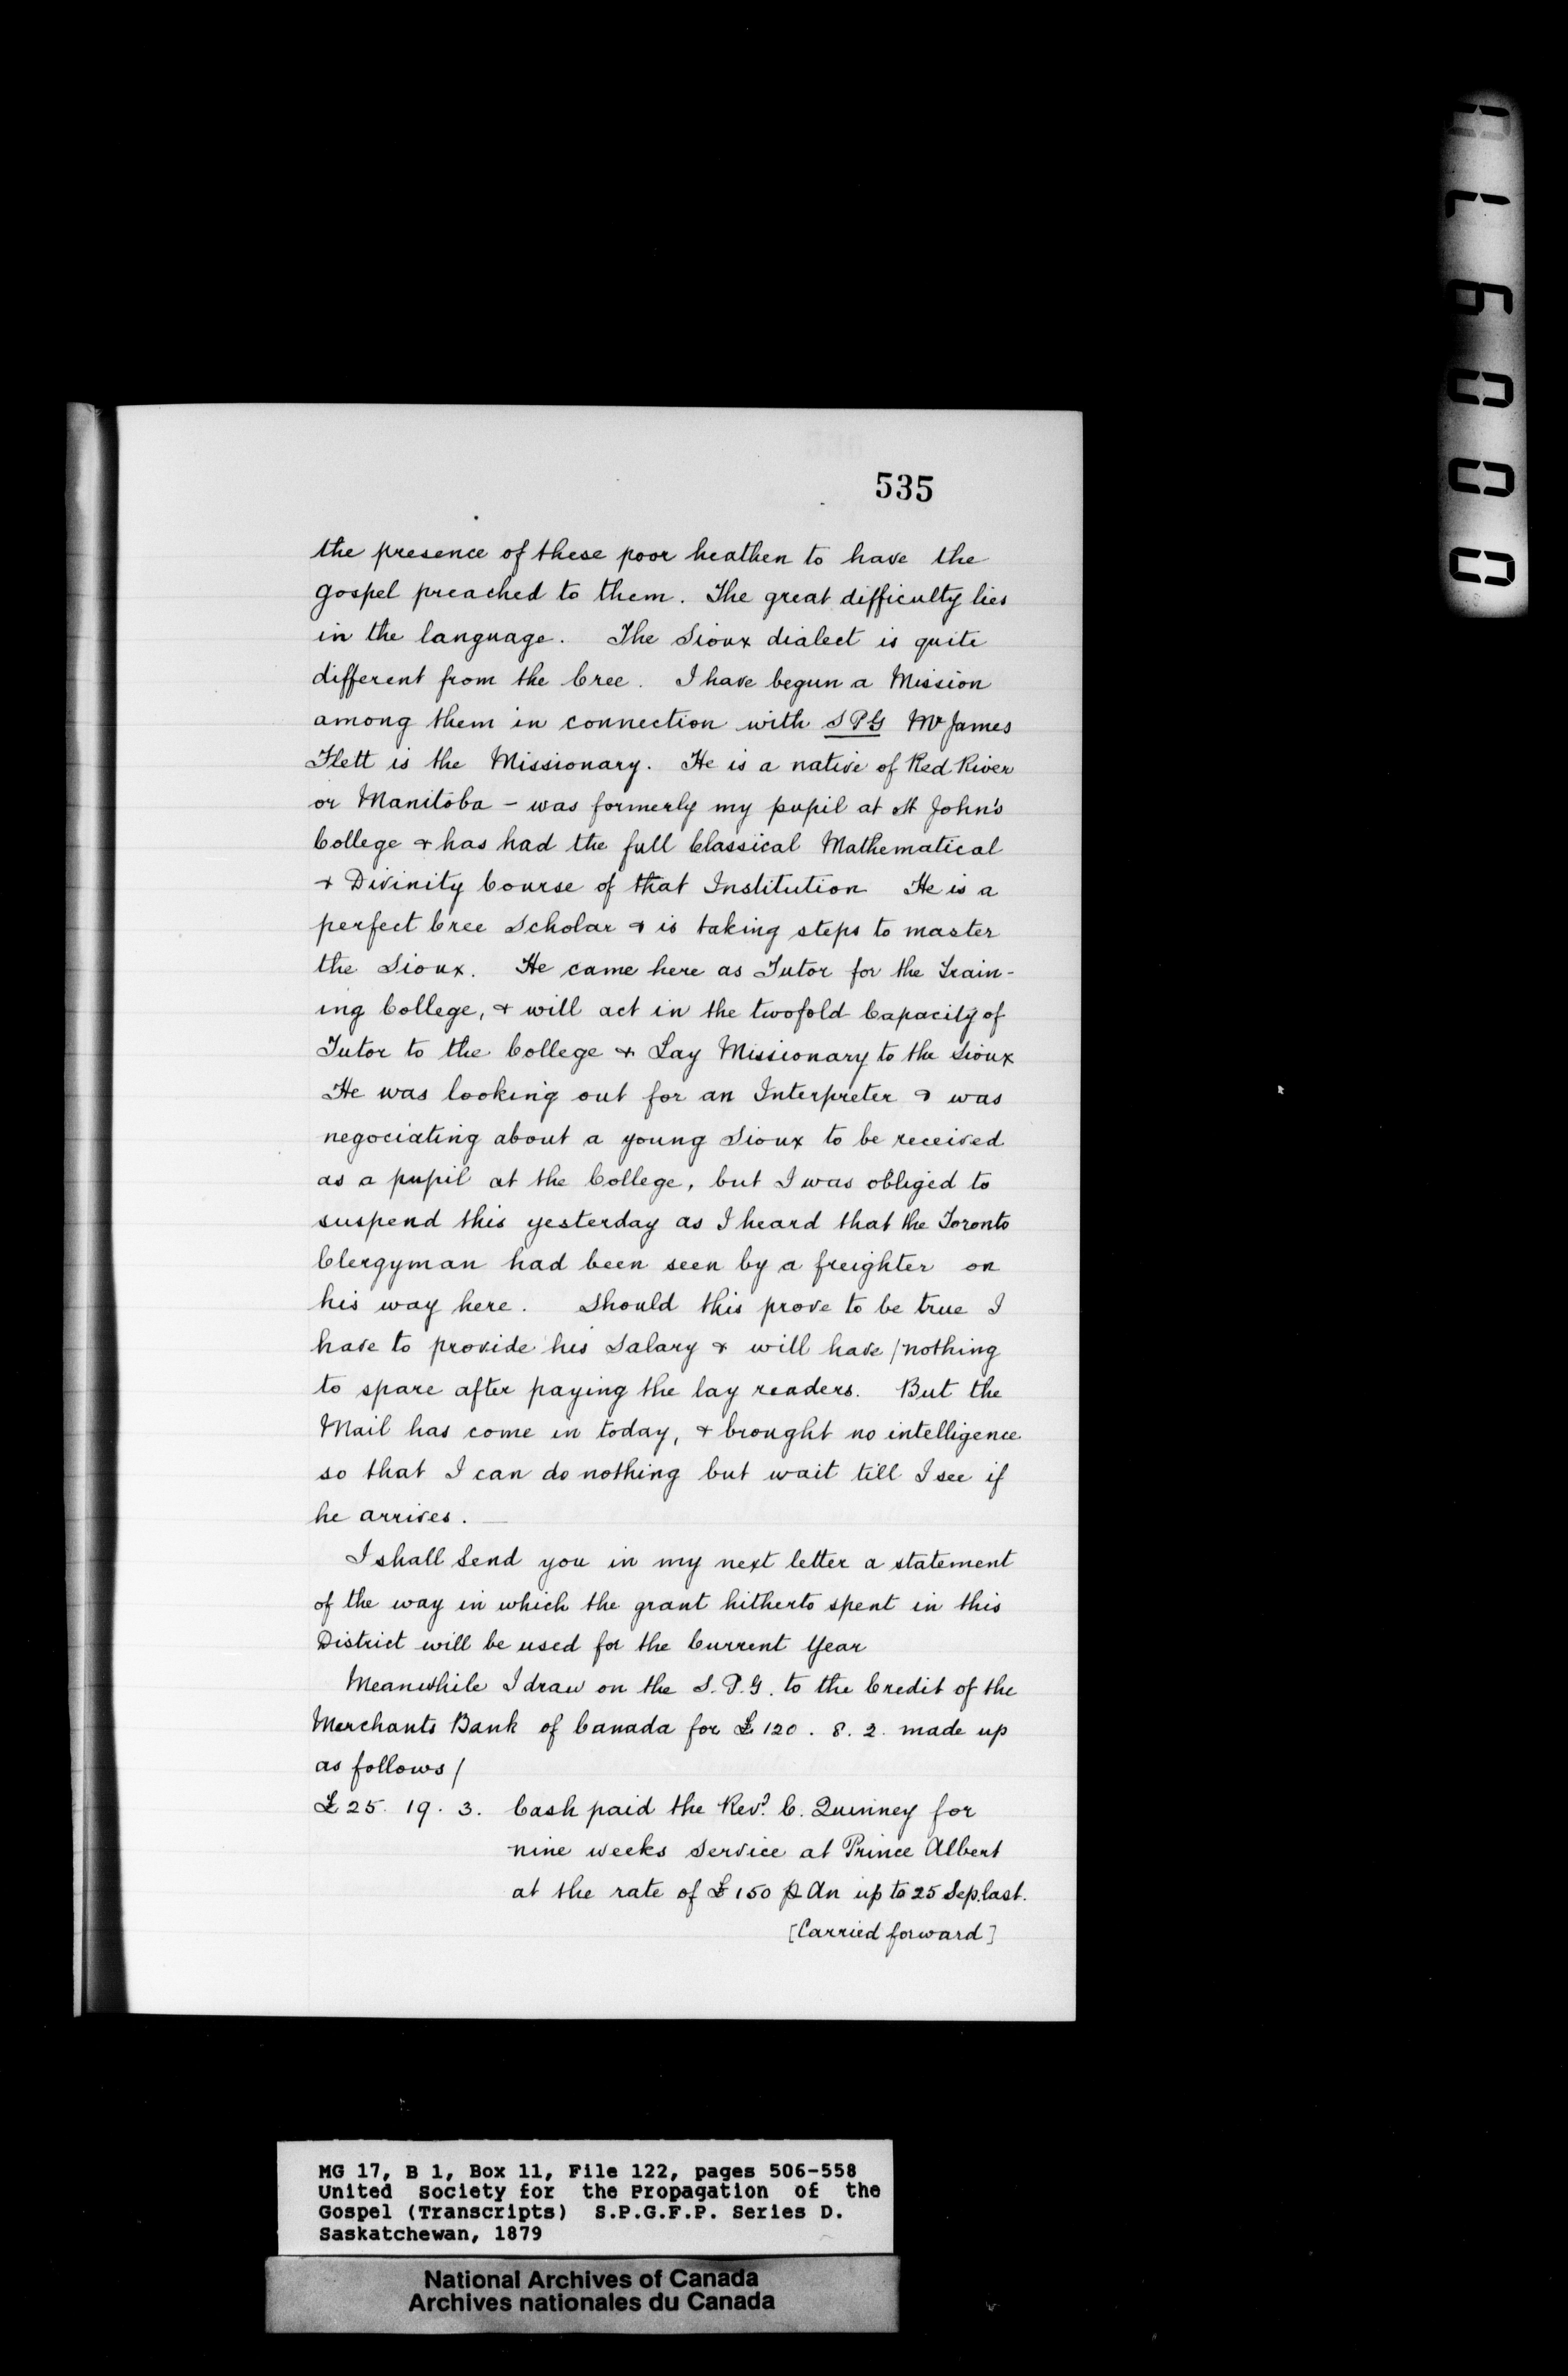 535
the presence of these poor heathen to have the
gospel preached to them. The great difficulty lies
in the language. The Sioux dialect is quite
different from the Cree. I have begun a Mission
among them in connection with SPG Mr James
Flett is the Missionary. He is a native of Red River
or Manitoba - was formerly my pupil at St John's
College & has had the full Classical Mathematical
& Divinity Course of that Institution He is a
perfect Cree Scholar & is taking steps to master
the Sioux. He came here as Tutor for the Train-
ing College, & will act in the twofold Capacity of
Tutor to the College & Lay Missionary to the Sioux
He was looking out for an Interpreter & was
negociating about a young Sioux to be received
as a pupil at the College, but I was obliged to
suspend this yesterday as I heard that the Toronto
Clergyman had been seen by a freighter on
his way here. Should this prove to be true I
have to provide his Salary & will have /nothing
to spare after paying the lay readers. But the
Mail has come in today, & brought no intelligence
so that I can do nothing but wait till I see if
he arrives. —
I shall send you in my next letter a statement
of the way in which the grant hitherto spent in this
District will be used for the Current Year
Meanwhile I draw on the S.P.G. to the Credit of the
Merchants Bank of Canada for £120. 8. 2. made up
as follows/
£25. 19. 3. Cash paid the Revd. C. Quinney for
nine weeks Service at Prince Albert
at the rate of £150 p An up to 25 Sep. last.
[Carried forward]
MG 17, B 1, Box 11, File 122, pages 506-558
United Society for the Propagation of the
Gospel (Transcripts) S.P.G.F.P. Series D.
Saskatchewan, 1879
National Archives of Canada
Archives nationales du Canada